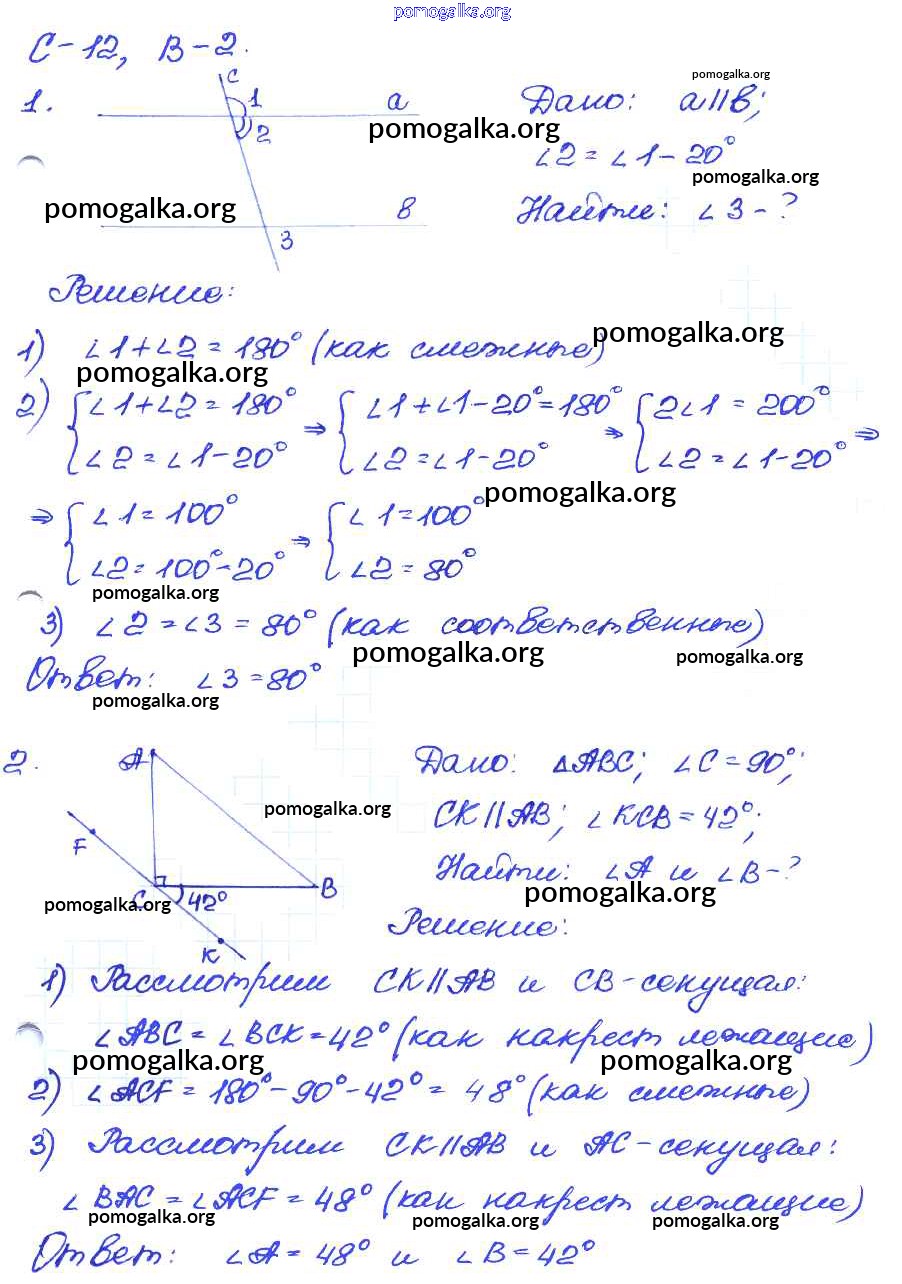 pomogalka.org
С-12, В-2.
pomogalka.org
1.
c
1
a
2
Дано: a∥в;
pomogalka.org
∠2 = ∠1 - 20°
pomogalka.org
pomogalka.org
в
3
Найти: ∠3 - ?
Решение:
1) ∠1 + ∠2 = 180° (как смежные)
pomogalka.org
pomogalka.org
2) { ∠1 + ∠2 = 180° ⇒ { ∠1 + ∠1 - 20° = 180° ⇒ { 2∠1 = 200° ⇒
∠2 = ∠1 - 20° ∠2 = ∠1 - 20° ∠2 = ∠1 - 20°
pomogalka.org
⇒ { ∠1 = 100° ⇒ { ∠1 = 100°
∠2 = 100° - 20° ∠2 = 80°
pomogalka.org
3) ∠2 = ∠3 = 80° (как соответственные)
pomogalka.org
pomogalka.org
Ответ: ∠3 = 80°
pomogalka.org
2.
A
F
C
B
42°
K
Дано: △ABC; ∠C = 90°;
pomogalka.org
CK ∥ AB; ∠KCB = 42°;
Найти: ∠A и ∠B - ?
pomogalka.org
pomogalka.org
Решение:
1) Рассмотрим CK ∥ AB и CB - секущая:
∠ABC = ∠BCK = 42° (как накрест лежащие)
pomogalka.org
pomogalka.org
2) ∠ACF = 180° - 90° - 42° = 48° (как смежные)
3) Рассмотрим CK ∥ AB и AC - секущая:
∠BAC = ∠ACF = 48° (как накрест лежащие)
pomogalka.org
pomogalka.org
pomogalka.org
Ответ: ∠A = 48° и ∠B = 42°